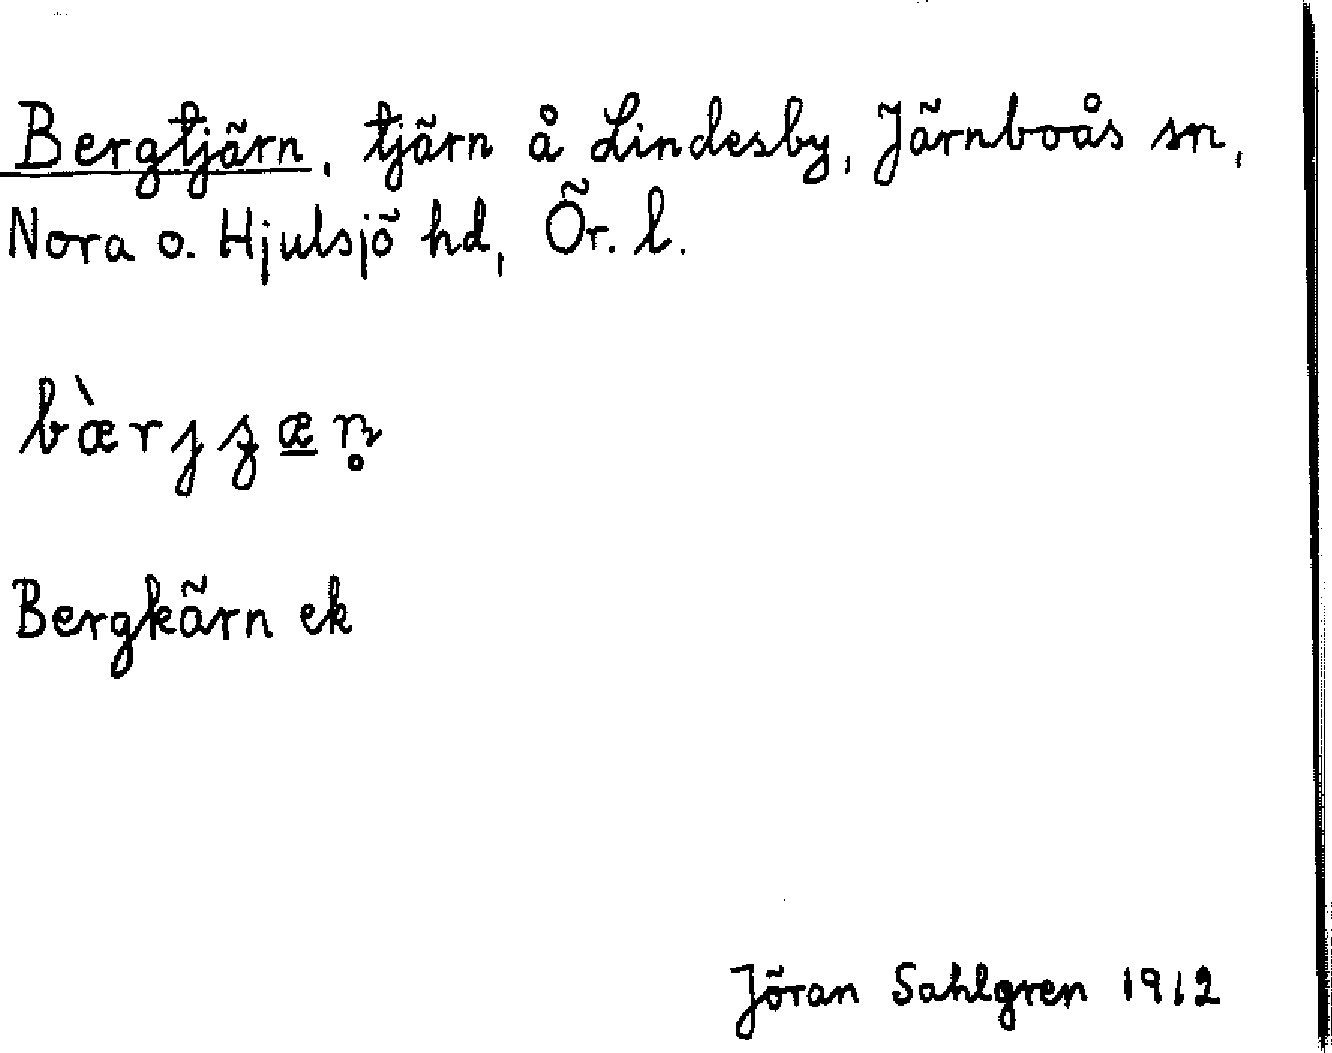 Bergtjärn, tjärn å Lindesby, Järnboås sn,
Nora o. Hjulsjö hd, Ör. l.
Bergkärn ek
Jöran Sahlgren 1912